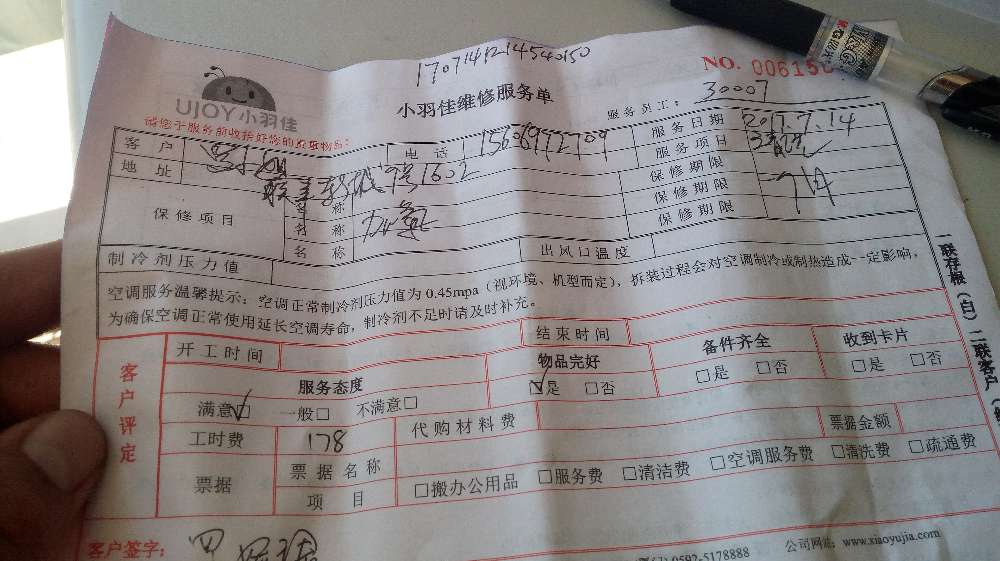 1707141214540150
NO. 00615
UJOY小羽佳
小羽佳维修服务单
服务员工: 30007
请您于服务前收拾好您的贵重物品:
客户 电话 15606972709 服务日期 2017.7.14
地址 号1602 服务项目
保修项目 名称 保修期限
名称 加氟 保修期限
名称 保修期限
制冷剂压力值 出风口温度
空调服务温馨提示:空调正常制冷剂压力值为 0.45mpa(视环境、机型而定),拆装过程会对空调制冷或制热造成一定影响,
为确保空调正常使用延长空调寿命,制冷剂不足时请及时补充。
一联存根(白)二联客户
客户评定
开工时间 结束时间
服务态度 物品完好 备件齐全 收到卡片
满意☑ 一般□ 不满意□ ☑是 □否 □是 □否 □是 □否
工时费 178 代购材料费 票据金额
票据 票据名称
项目 □搬办公用品 □服务费 □清洁费 □空调服务费 □清洗费 □疏通费
客户签字:
0592-5178888 公司网站: www.xiaoyujia.com